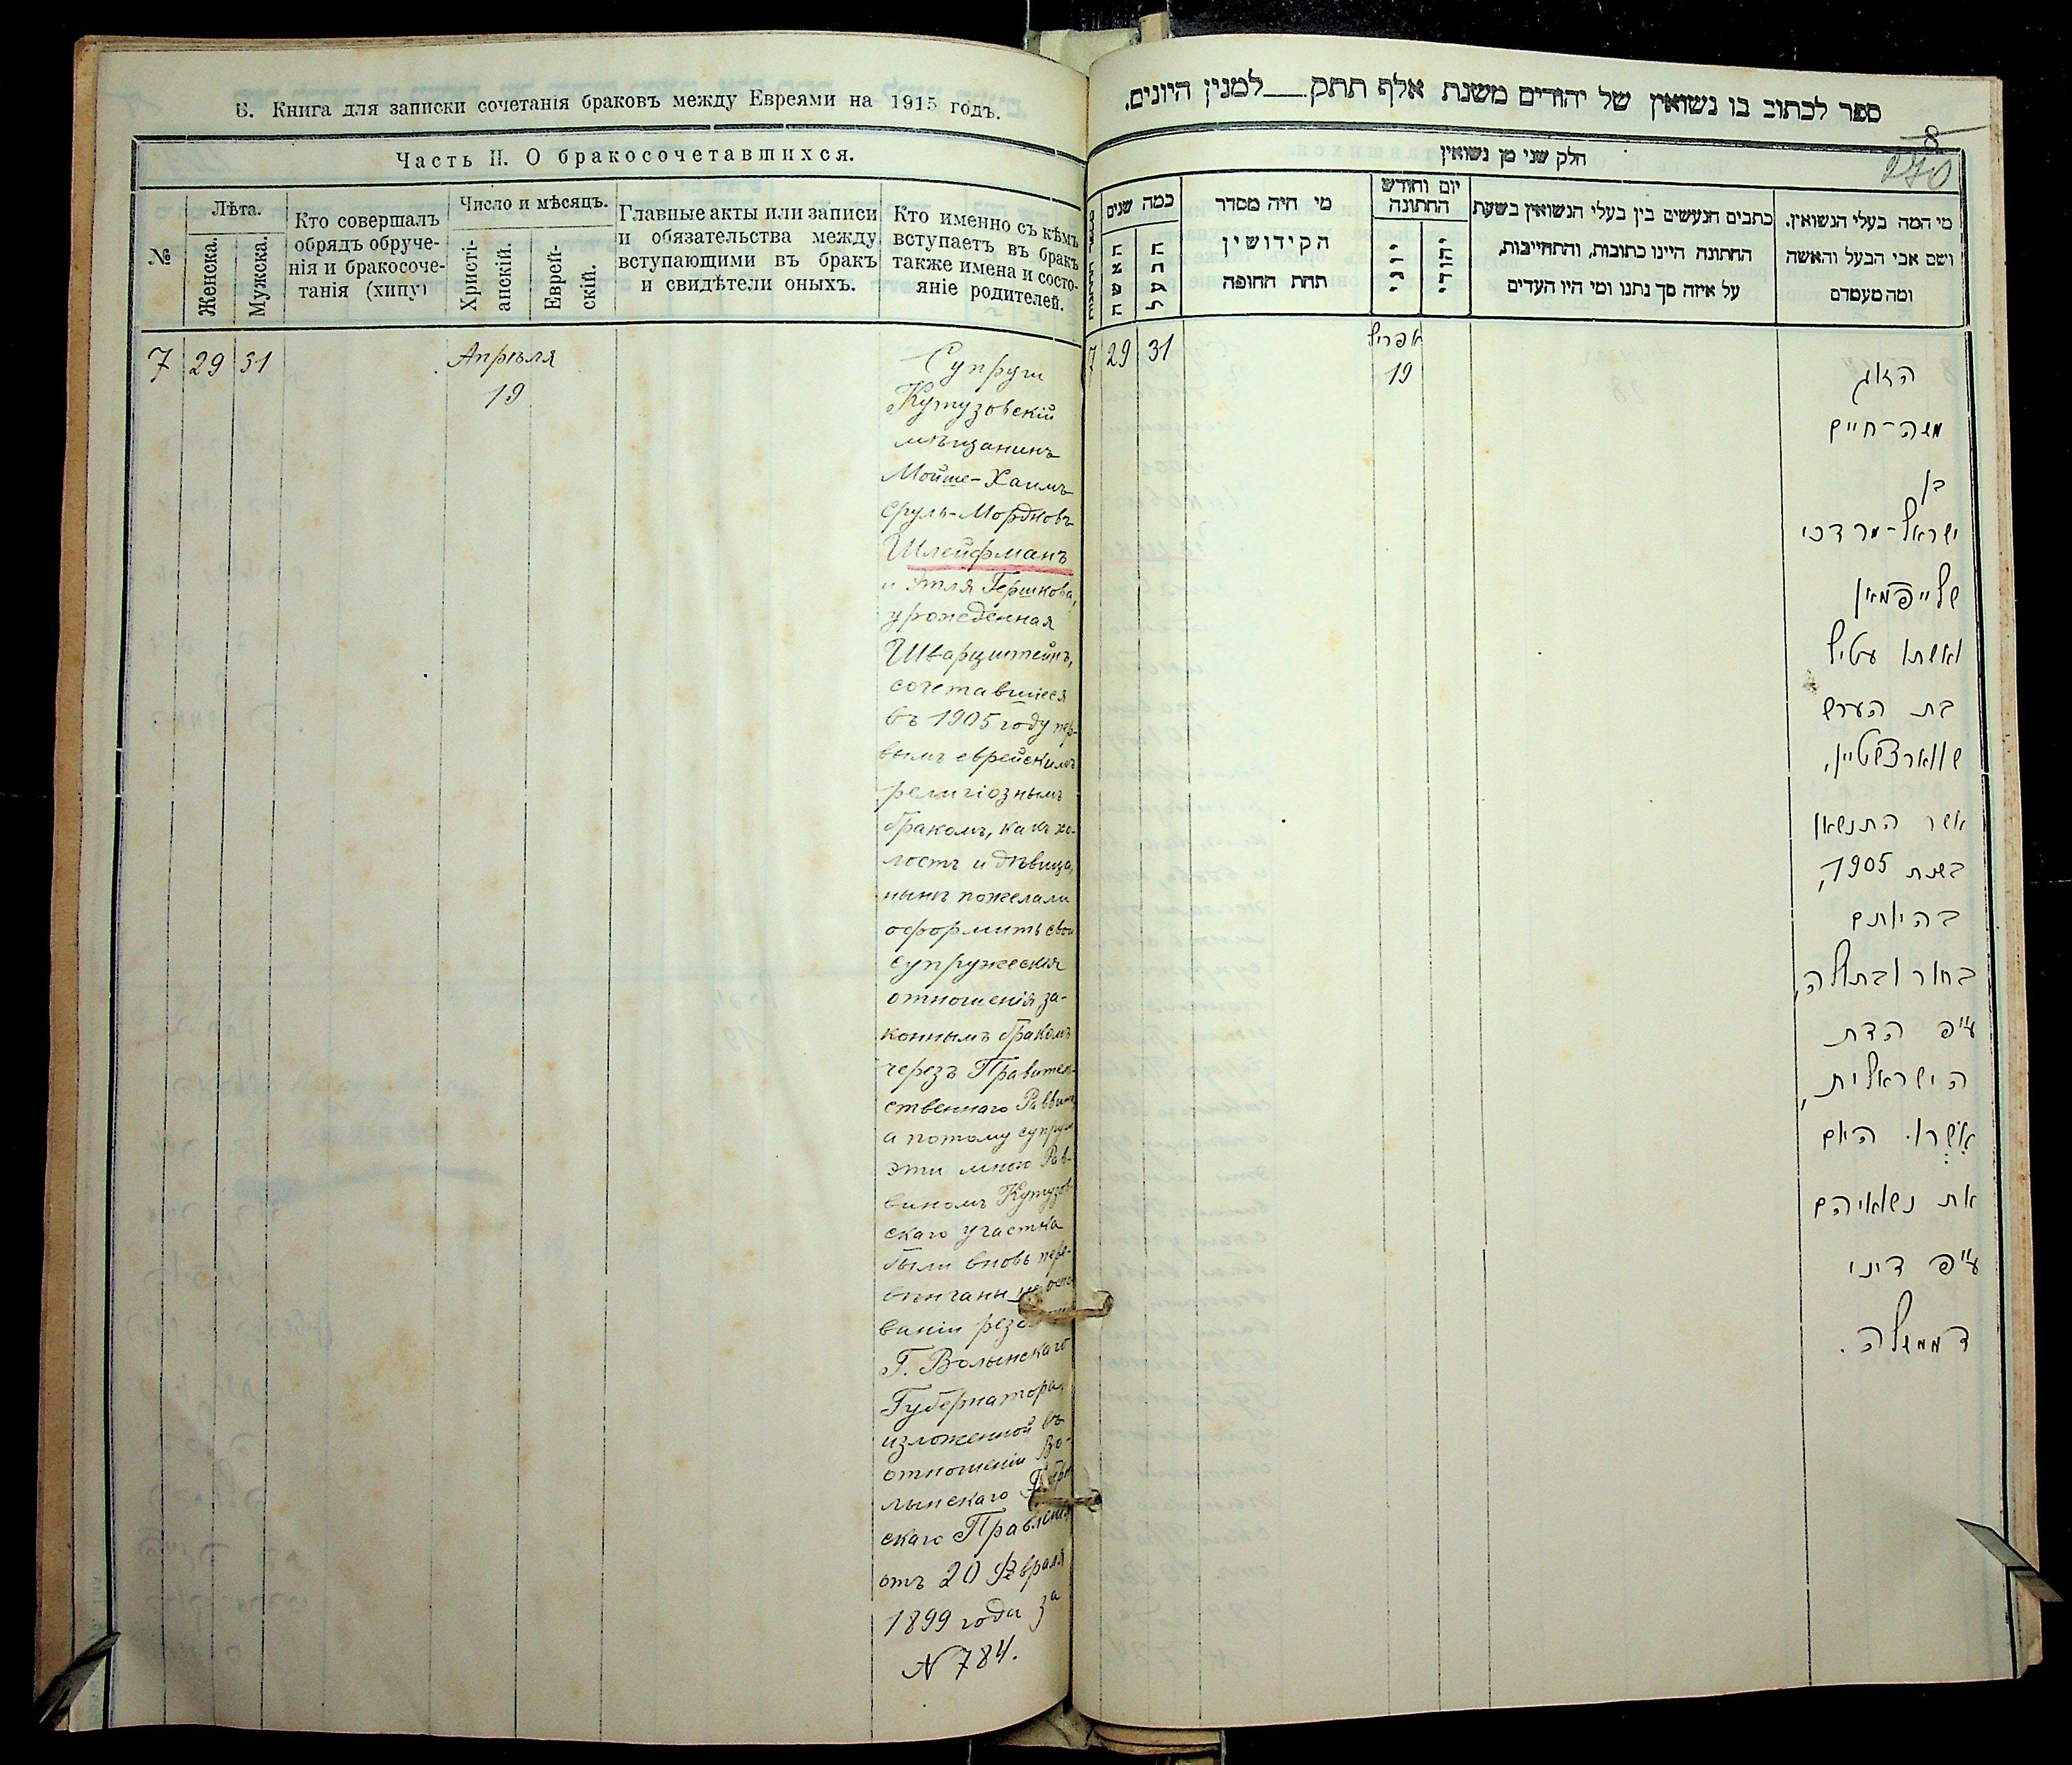 Б. Книга для записки сочетанія браковъ между Евреями на 1915 годъ.
Часть II. О бракосочетавшихся.
№
Лѣта.
Женска.
Мужска.
Кто совершалъ
обрядъ обруче-
нія и бракосоче-
танія (хипу)
Число и мѣсяцъ.
Христі-
анскій.
Еврей-
скій.
Главные акты или записи
и обязательства между
вступающими въ бракъ
и свидѣтели оныхъ.
Кто именно съ кѣмъ
вступаетъ въ бракъ
также имена и состо-
яніе родителей.
7 29 31
Апрѣля
19
Супруги
Кутузовскій
мѣщанинъ
Мойше-Хаимъ
Сруль-Мордковъ
Шлейфманъ
и Этля Гершкова,
урожденная
Шварцштейнъ,
сочетавшіеся
въ 1905 году пер-
вымъ еврейскимъ
религіознымъ
бракомъ, какъ хо-
лостъ и дѣвица,
нынѣ пожелали
оформить свои
супружескія
отношенія за-
коннымъ бракомъ
черезъ Правитель-
ственнаго Раввина,
а потому супруги
эти мною Рав-
виномъ Кутузов-
скаго участка
были вновь пере-
вѣнчаны на осно-
ваніи
Г. Волынскаго
Губернатора,
изложенной въ
отношеніи Во-
лынскаго
скаго Правленія
отъ 20 Февраля
1899 года за
N 784.
ספר לכתוב בו נשואין של יהודים משנת אלף תתק___למנין היונים.
8
270
חלק שני מן נשואין
כמה שנים
האשה
הבעל
מי היה מסדר
הקידושין
תחת החופה
יום וחודש
החתונה
כתבים הנעשים בין בעלי הנשואין בשעת
החתונה היינו כתובות, והתחייבות,
על איזה סך נתנו ומי היו העדים
מי המה בעלי הנשואין.
ושם אבי הבעל והאשה
ומה מעמדם
7 29 31
אפריל
19
הזוג
משה-חיים
בן
ישראל-מרדכי
שלייפמאן
ואשתו עטיל
בת הערש
שווארצשטיין,
אשר התנשאו
בשנת 1905,
בהיותם
בחור ובתולה,
ע״פ הדת
הישראלית,
אשרו היום
את נשואיהם
ע״פ דיני
הממשלה.